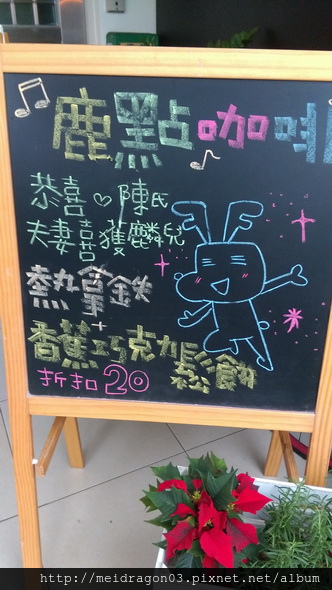 鹿點咖啡
恭喜♡陳氏
夫妻喜獲麟兒
熱拿鐵
+
香蕉巧克力鬆餅
折扣20
http://meidragon03.pixnet.net/album